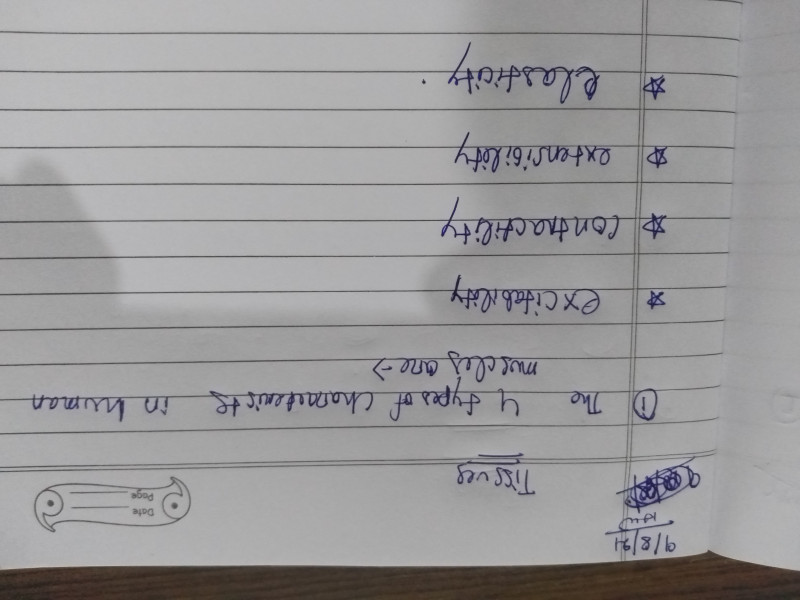 9/8/21
Date
Page
Tissues
① The 4 types of charecterists in human
muscles are →
☆ excitability
☆ contractility
☆ extensibility
☆ Elasticity